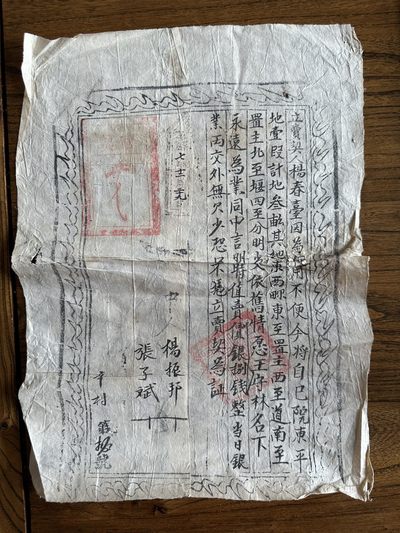 立賣契楊春臺因為使用不便今將自己院東平
地壹段計地叁畝其地東西畛東至置主西至道南至
置主北至堰四至分明文依舊情愿王彦林名下
永遠為業同中言明時值賣價銀捌錢整當日銀
業兩交外無欠少恐不憑立賣契為証
七 元
楊振邦
張子斌
村 號